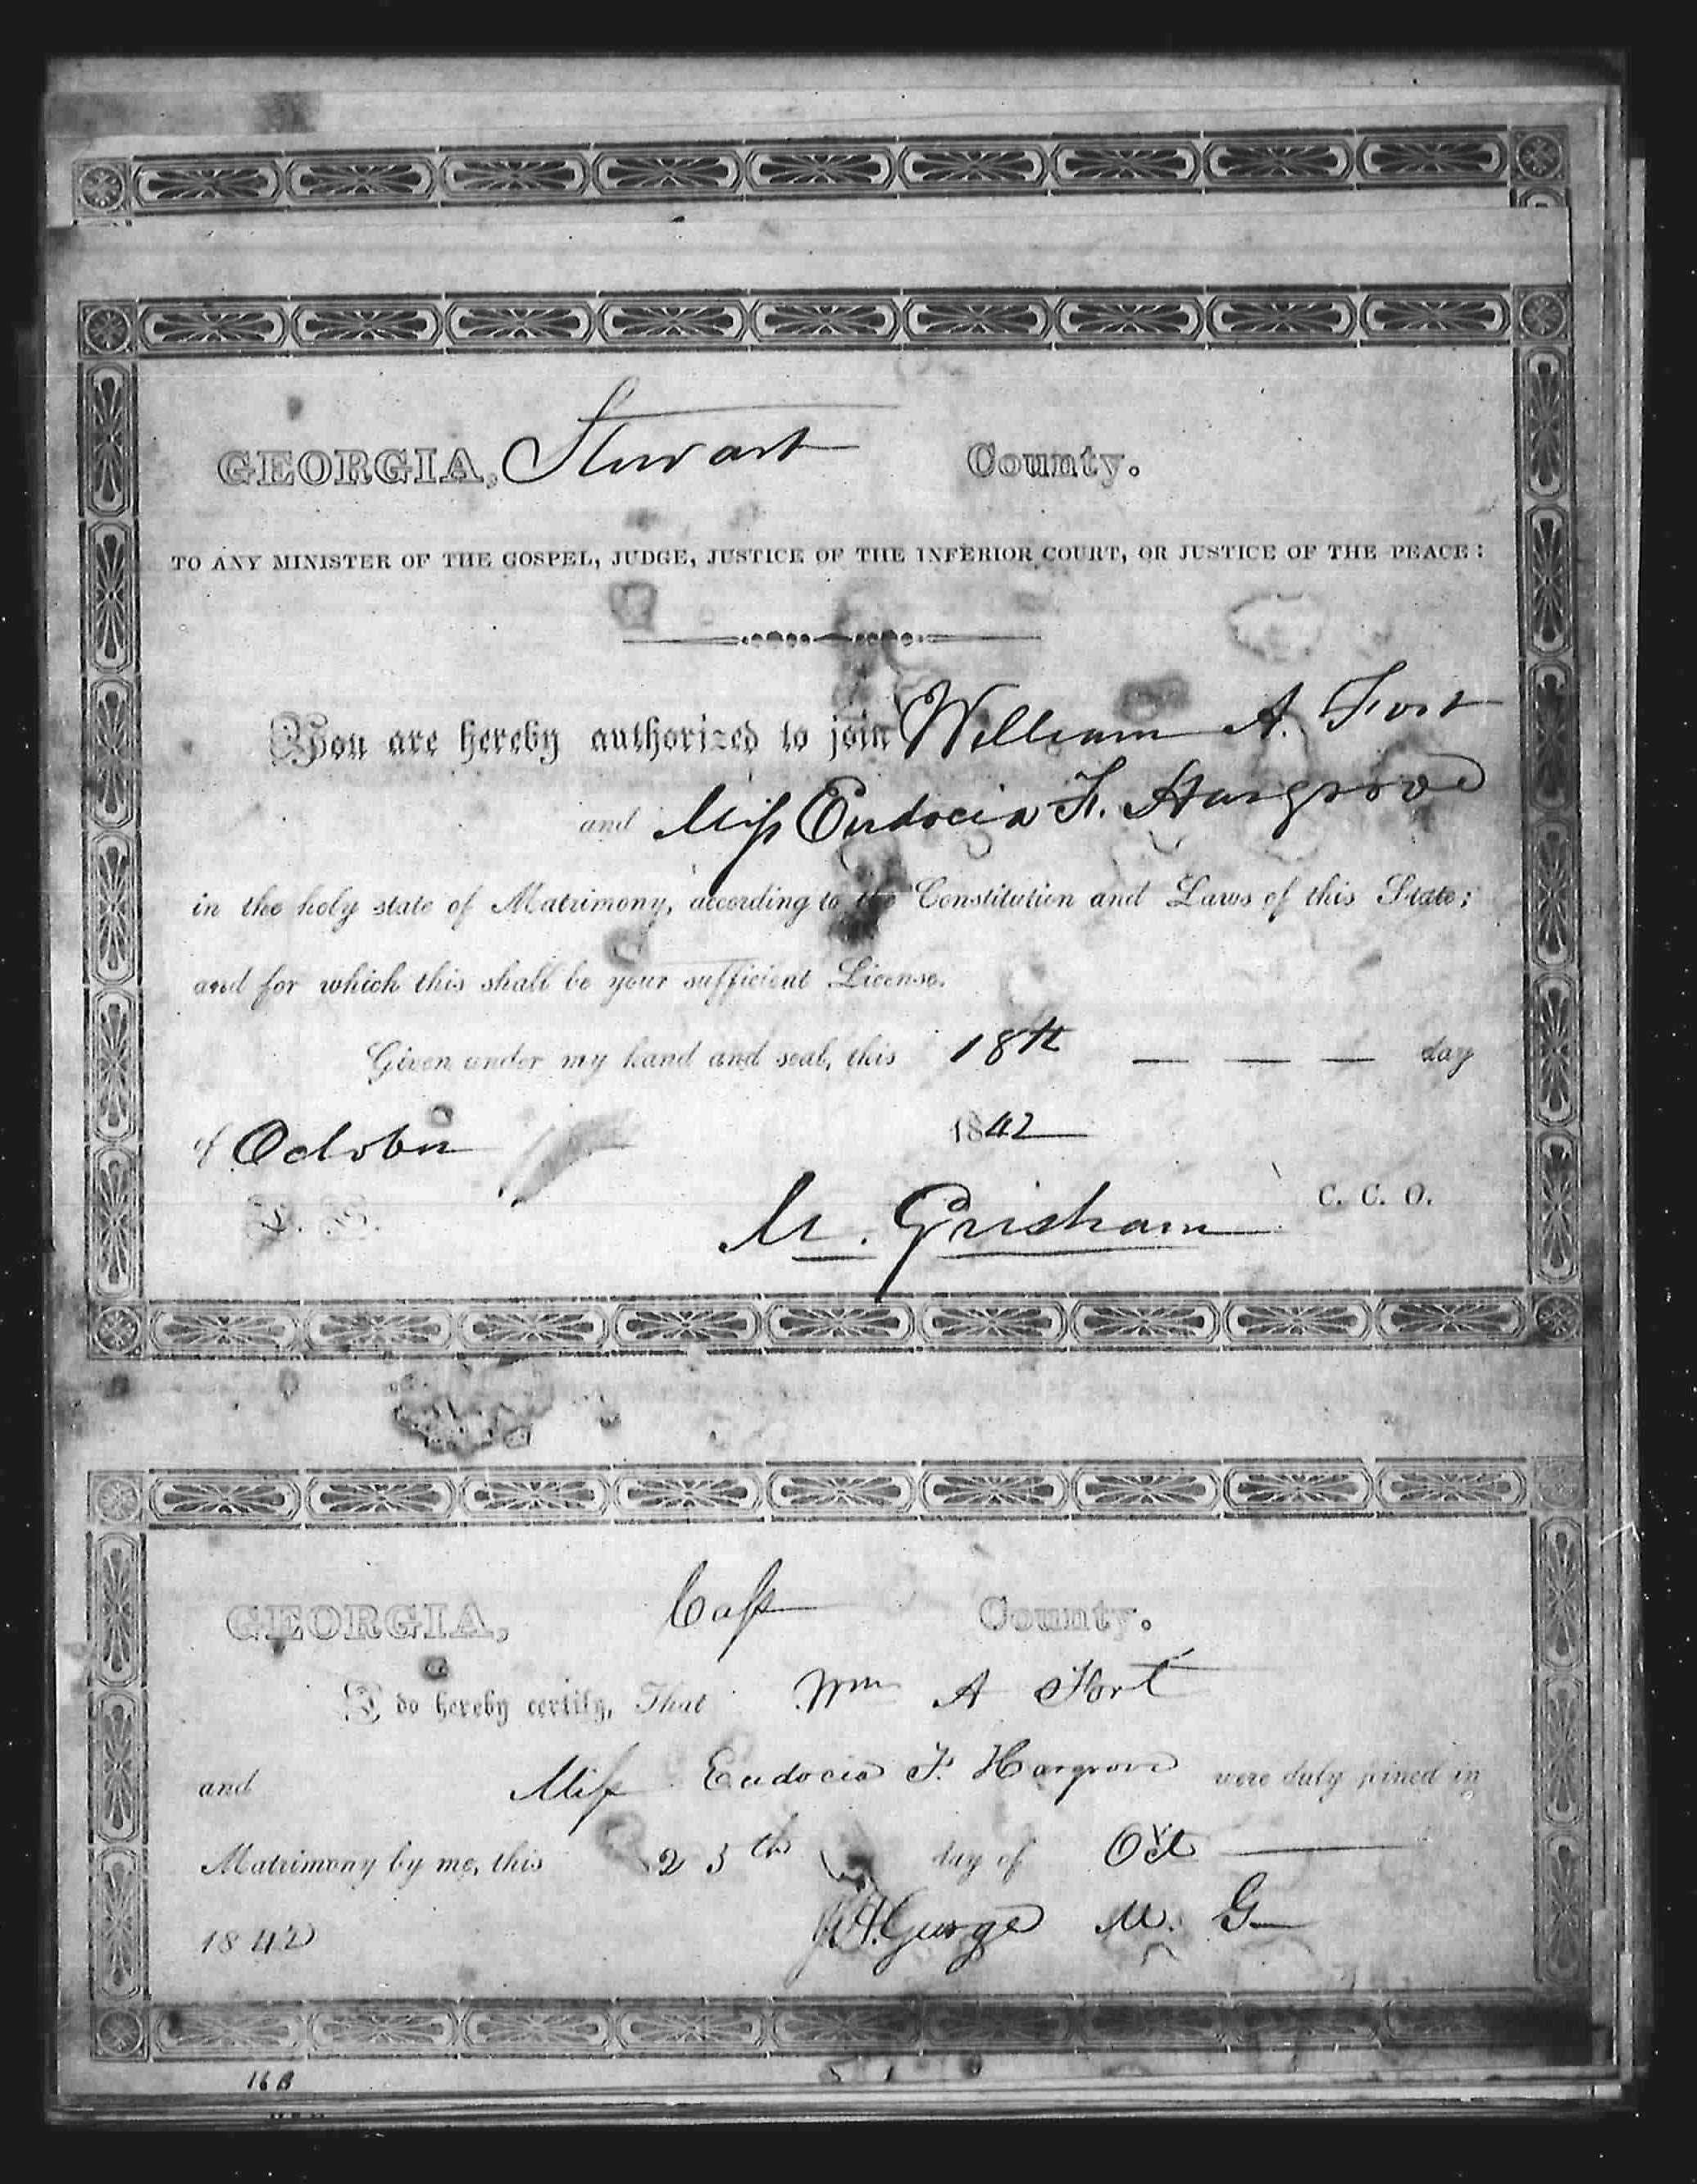 GEORGIA, Stewart County.
TO ANY MINISTER OF THE GOSPEL, JUDGE, JUSTICE OF THE INFERIOR COURT, OR JUSTICE OF THE PEACE:
You are hereby authorized to join William A. Fort
and Miſs Eudocia F. Hargrove
in the holy state of Matrimony, according to the Constitution and Laws of this State;
and for which this shall be your sufficient License.
Given under my hand and seal, this 18th — — — day
of October 1842
L. S. M. Grisham C. C. O.
GEORGIA, Caſs County.
I do hereby certify, That Wm A Fort
and Miſs Eudocia F. Hargrove were duly joined in
Matrimony by me, this 25th day of Oct
1842 George M. G
16B